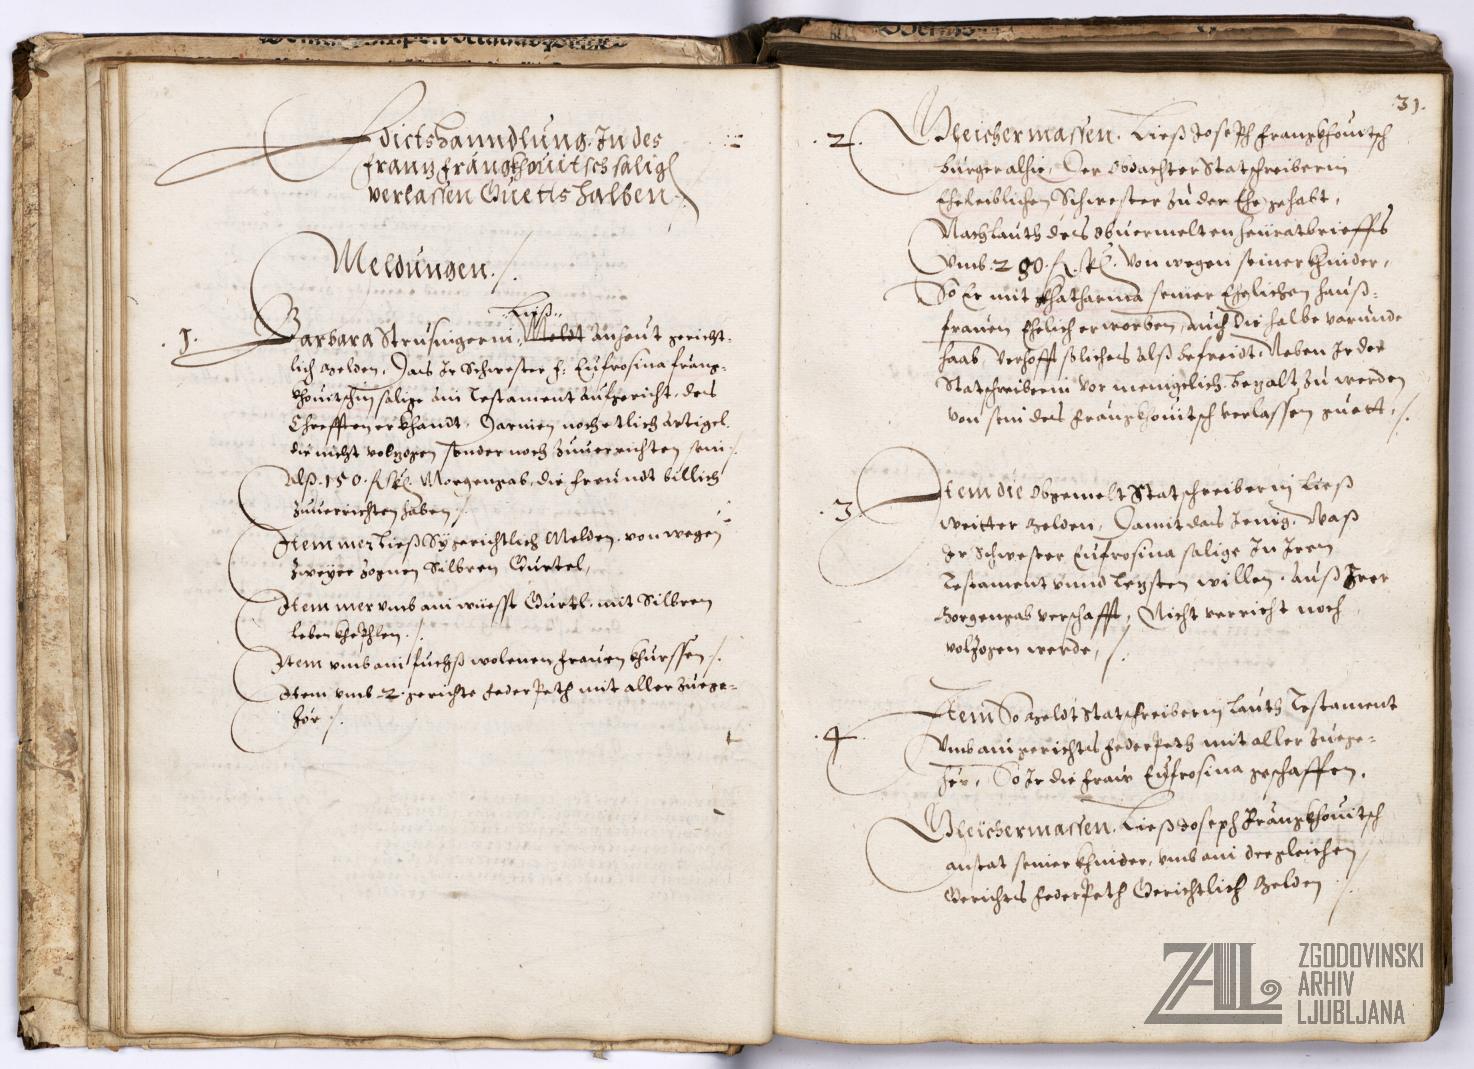 Edictshanndlung. In des
Franz Frangkhouitsch salig
verlassen Guetts halben.
Meldungen ./.
Ließ
1. Barbara Strusingerin, Meldt anheut gericht-
lich melden, Das Ir Schwester f: Eufrosina Frang-
khouitschin salige ain Testament aufgericht, des
Chrefften erkhandt, Darinen noch etlich artigel
die nicht volzogen sonder noch zuuerrichten sein /.
Alß 150. R. Morgengab, die freundt billich
zuuerrichten haben /.
Item mer ließ Sy gerichtlich Melden, von wegen
zweyer Silbren Gurtel,
Item mer vmb ain Gurtl. mit Silbren
/.
Item vmb ain fuchß frauen khurssen /.
Item vmb 2. gerichte federpeth mit aller zuege-
hör /.
31.
2. Gleichermassen. Ließ Joseph Frangkhouitsch
burger alhie, Der obdachter Statschreiberin
Eheleiblichen Schwester zu der Ehe gehabt,
Nach lauth des obuermelten heuratbrieffs
Vmb. 280. R. von wegen seiner khinder,
So Er mit Khatharina seiner Ehelichen hauß-
frauen Ehelich erworben, auch die halbe varunde
haab, verhofft solliches alß befreidt, Neben Ir der
Statschreiberin vor menigelich bezalt zu werden
von sein des Frangkhouitsch verlassen guett, /.
3. Item die obgemelt Statschreiberin Ließ
weitter melden, Damit das Jenig, Waß
Ir Schwester Eufrosina salige In Irem
Testament vnnd lezsten willen, auß Irer
Morgengab verschafft, Nicht verricht noch
volzogen werde, /.
4. Item So meldt Statschreiberin lauth Testament
Vmb ain gerichts federpeth mit aller zuege-
hör, So Ir die fraw Eufrosina geschaffen.
Gleichermassen. Ließ Joseph Frangkhouitsch
anstat seiner khinder, vmb ain dergleichen
Gerichts federpeth Gerichtlich Melden /.
ZAL ZGODOVINSKI
ARHIV
LJUBLJANA